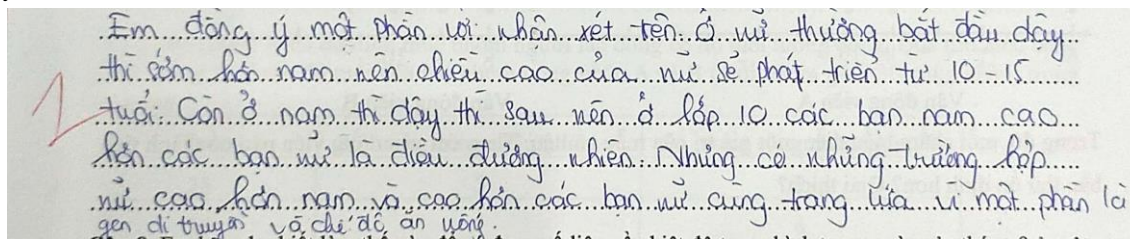 Em đồng ý một phần với nhận xét trên. Ở nữ thường bắt đầu dậy
thì sớm hơn nam nên chiều cao của nữ sẽ phát triển từ 10-15
tuổi. Còn ở nam thì dậy thì sau nên ở lớp 10 các bạn nam cao
hơn các bạn nữ là điều đương nhiên. Nhưng có những trường hợp
nữ cao hơn nam và cao hơn các bạn nữ cùng trang lứa vì một phần là
gen di truyền và chế độ ăn uống.